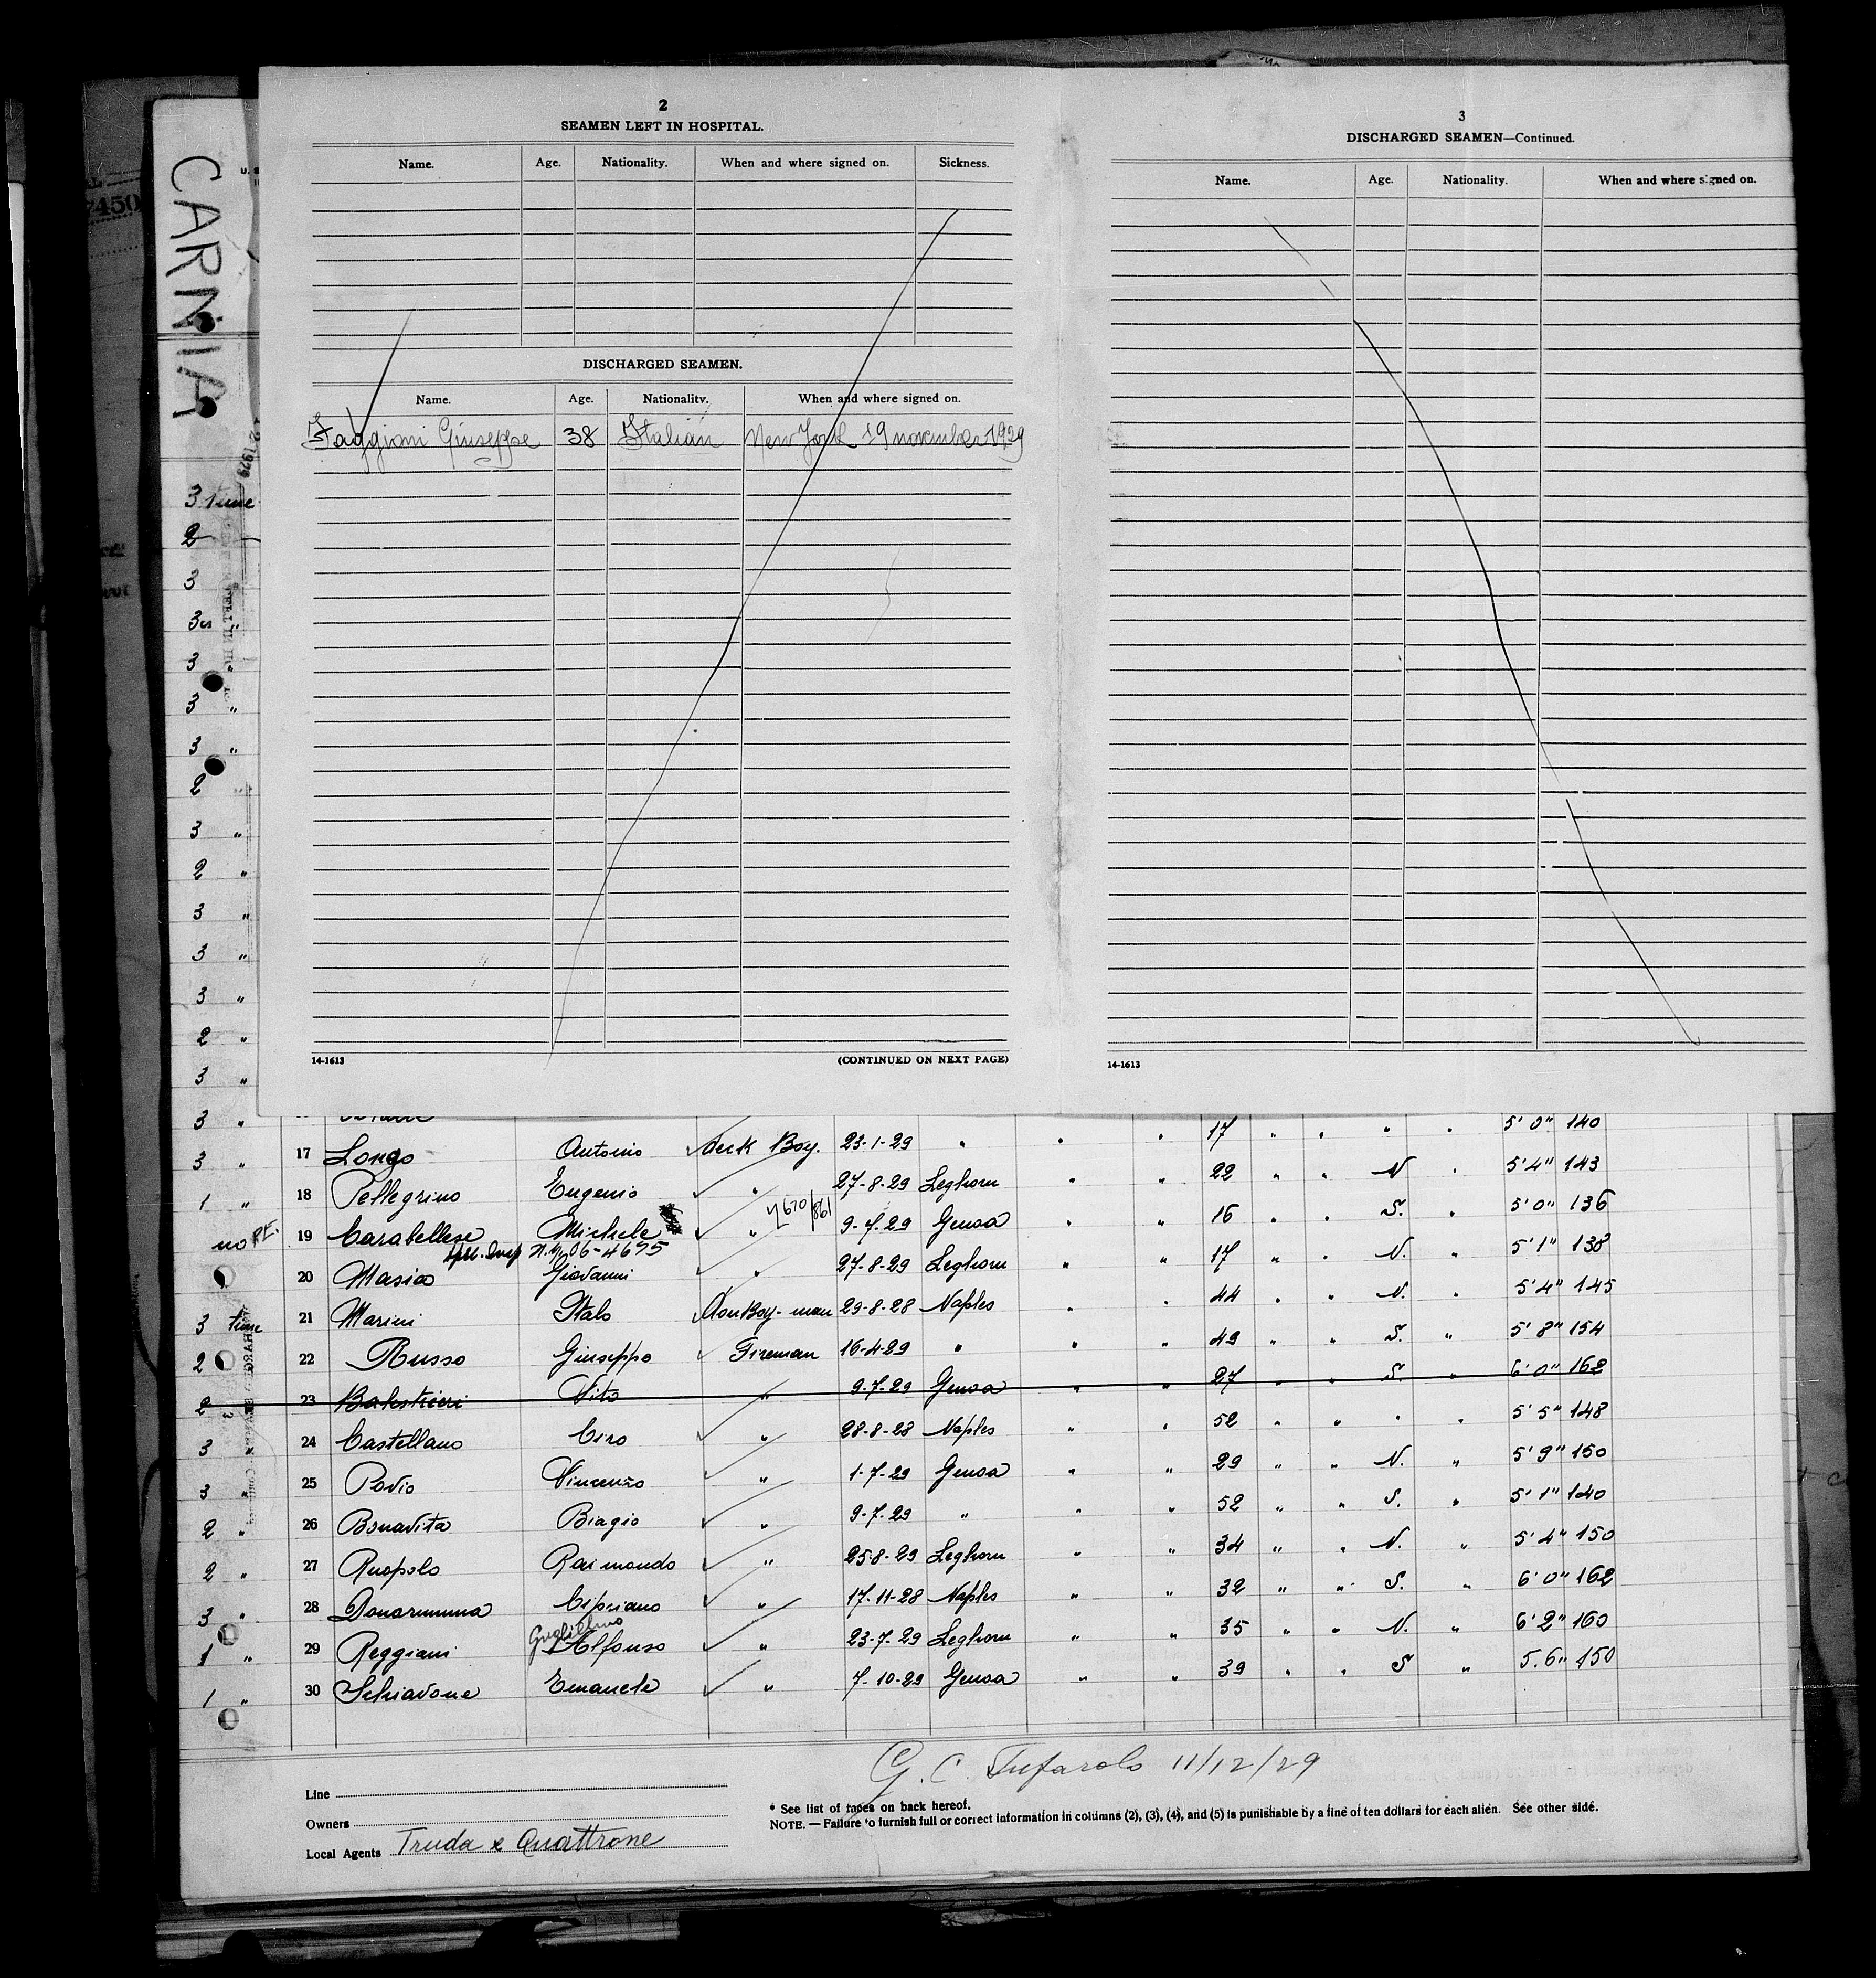 CARNIA
2
SEAMEN LEFT IN HOSPITAL.
Name. Age. Nationality. When and where signed on. Sickness.
DISCHARGED SEAMEN.
Name. Age. Nationality. When and where signed on.
Faggioni Giuseppe 38 Italian New York 19 november 1929
14-1613 (CONTINUED ON NEXT PAGE)
3
DISCHARGED SEAMEN—Continued.
Name. Age. Nationality. When and where signed on.
14-1613
3 " 17 Longo Antonio deck Boy. 23-1-29 " " " 17 " " " " 5' 0" 140
1 " 18 Pellegrino Eugenio " 27-8-29 Leghorn " " 22 " " N " 5'4" 143
no 19 Carabellese Michele " 9-7-29 Genoa " " 16 " " S. " 5'0" 136
20 Masia Giovanni " 27-8-29 Leghorn " " 17 " " N. " 5'1" 138
3 time 21 Marini Italo DonKey-man 29-8-28 Naples " " 44 " " N. " 5'4" 145
2 22 Russo Giuseppe Fireman 16-4-29 " " " 49 " " S. " 5' 8" 154
2 23 Balestrieri Vito " 9-7-29 Genoa " " 27 " " S. " 6'0" 162
3 " 24 Castellano Ciro " 28-8-28 Naples " " 52 " " " " 5' 5" 148
3 " 25 Povio Vincenzo " 1-7-29 Genoa " " 29 " " N. " 5' 9" 150
2 " 26 Bonavita Biagio " 9-7-29 " " " 52 " " S. " 5' 1" 140
2 " 27 Ruopolo Raimondo " 25-8-29 Leghorn " " 34 " " N. " 5' 4" 150
3 " 28 Donarumma Cipriano " 17-11-28 Naples " " 32 " " S. " 6' 0" 162
Guglielmo
1 " 29 Reggiani Alfonso " 23-7-29 Leghorn " " 35 " " N. " 6' 2" 160
1 " 30 Schiavone Emanuele " 7-10-29 Genoa " " 39 " " S " 5.6" 150
G. C. Tufarolo 11/12/29
Line
Owners
Local Agents Truda & Quattrone
* See list of races on back hereof.
NOTE. — Failure to furnish full or correct information in columns (2), (3), (4), and (5) is punishable by a fine of ten dollars for each alien. See other side.